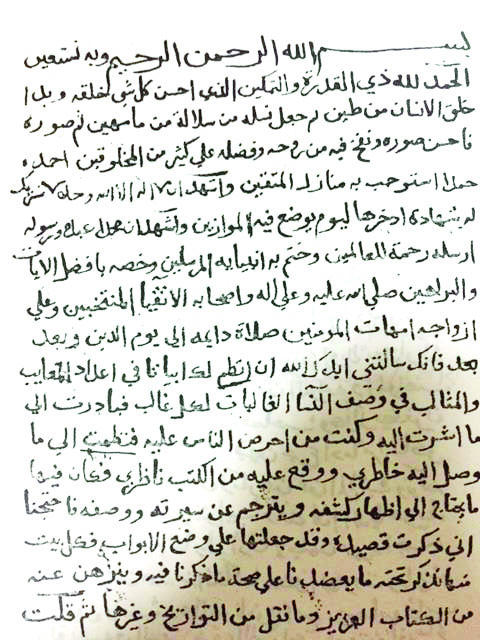 بسم الله الرحمن الرحيم وبه نستعين
الحمد لله ذي القدرة والتمكين الذي احسن كل شي خلقه وبدا
خلق الانسان من طين ثم جعل نسله من سلالة من ما مهين ثم صوره
فاحسن صوره ونفخ فيه من روحه وفضله علي كثير من المخلوقين احمده
حمدا استوجب به منازل المتقين واشهد ان لا اله الا الله وحده لا شريك
له شهادة ادخرها ليوم يوضع فيه الموازين واشهد ان محمدا عبده ورسوله
ارسله رحمة للعالمين وختم به انبيايه المرسلين وخصه بافضل الايات
والبراهين صلي الله عليه وعلي اله واصحابه الاتقيا المنتخبين وعلي
ازواجه امهات المومنين صلاة دايمه الي يوم الدين وبعد
بعد فانك سالتني ايدك الله ان انظم لك ابياتا في اعداد المعايب
والمثالب في وصف النسا الغالبات لكل غالب فبادرت الي
ما اشرت اليه وكنت من احرص الناس عليه فنظمت الي ما
وصل اليه خاطري ووقع عليه من الكتب ناظري فكان فيها
ما يحتاج الي اظهار كشفه ويترجم عن سيرته ووصفه فاحتجنا
الي ذكرت قصيدة وقد جعلتها علي وضع الابواب فكل بيت
منها نذكر تحته ما يعضدنا علي صحة ما ذكرنا فيه ويبرهن عنه
من الكتاب العزيز وما نقل من التواريخ وغيرها ثم قلت